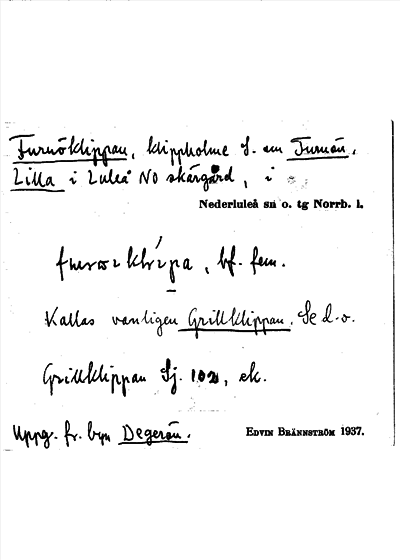 Furuöklippan, klippholme S. om Furuön,
Lilla i Luleå NO skärgård, i
Nederluleå sn o. tg Norrb. l.
bf. fem.
Kallas vanligen Grillklippan. Se d.o.
Grillklippan Sj. 102, ek.
Uppg. fr. byn Degerön.
EDVIN BRÄNNSTRÖM 1937.